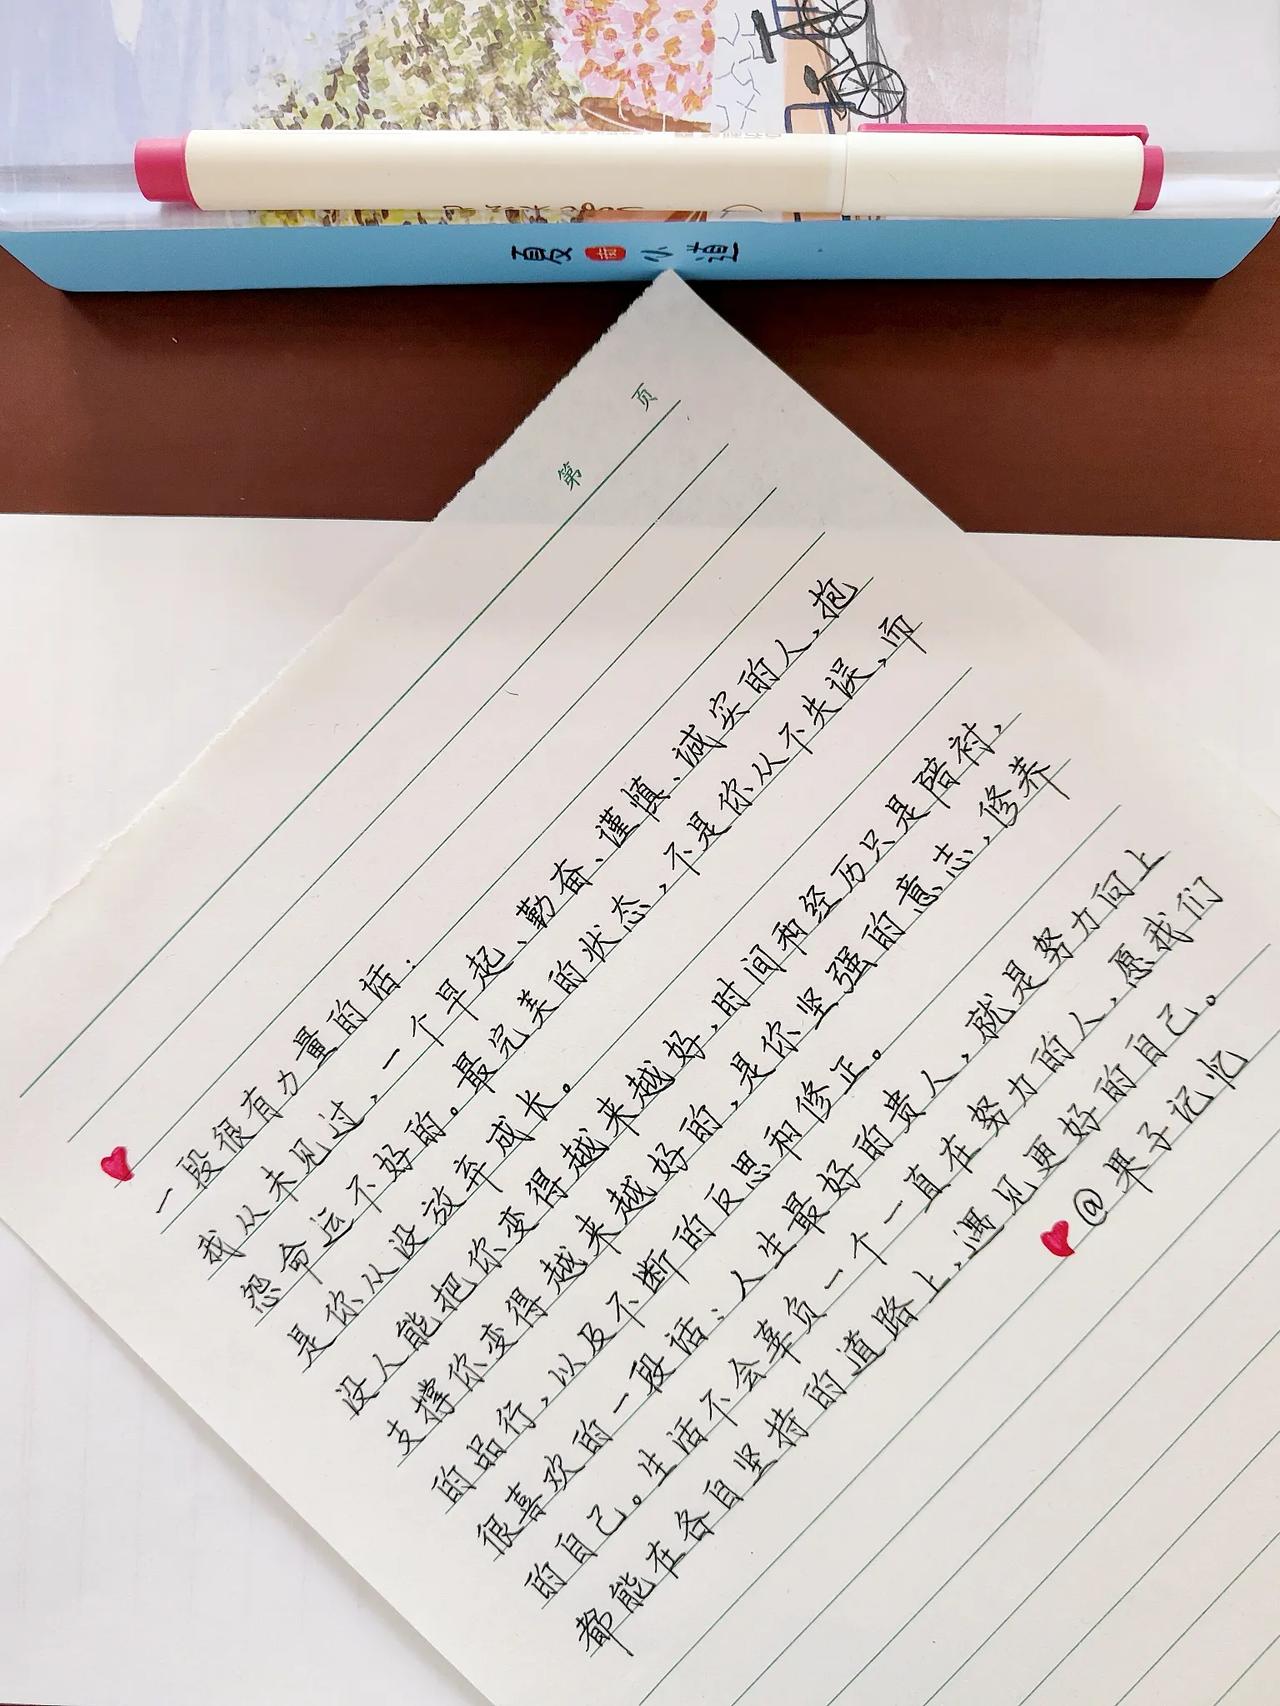 夏 小 道
第 页
一段很有力量的话：
我从未见过，一个早起、勤奋、谨慎、诚实的人，抱
怨命运不好的。最完美的状态，不是你从不失误，而
是你从没放弃成长。
没人能把你变得越来越好，时间和经历只是陪衬，
支撑你变得越来越好的，是你坚强的意志、修养
的品行，以及不断的反思和修正。
很喜欢的一段话：人生最好的贵人，就是努力向上
的自己。生活不会辜负一个一直在努力的人，愿我们
都能在各自坚持的道路上，遇见更好的自己。
@果子记忆